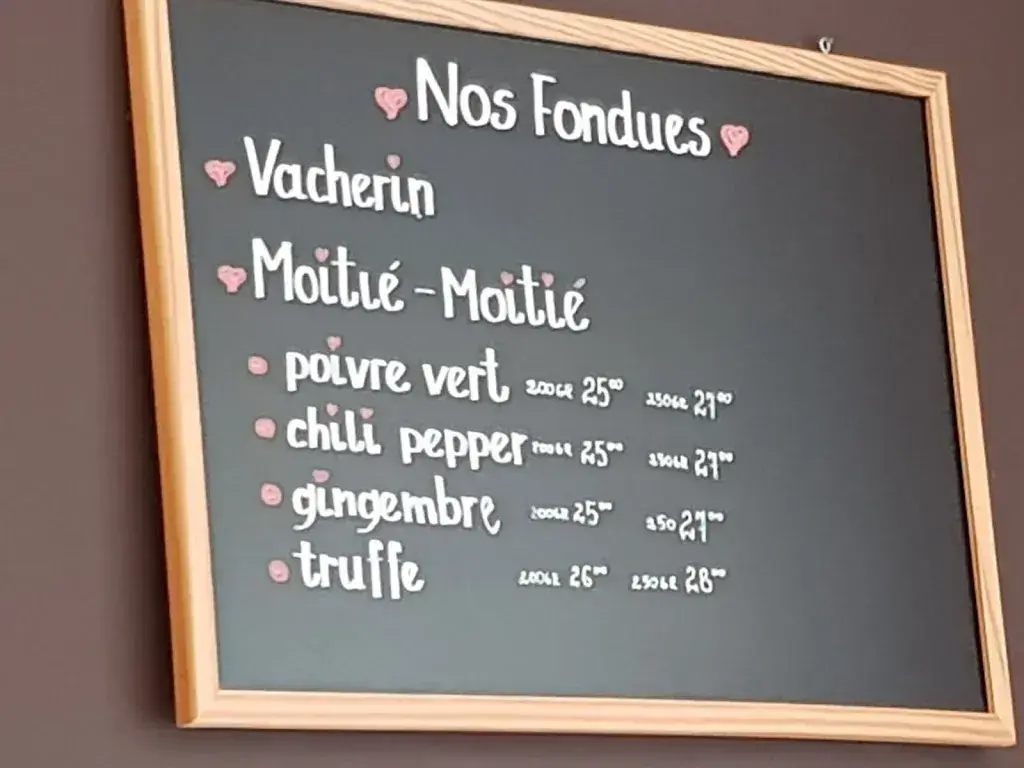 Nos Fondues
Vacherin
Moitié - Moitié
poivre vert 200GR 25⁰⁰ 250GR 27⁰⁰
chili pepper 200GR 25⁰⁰ 250GR 27⁰⁰
gingembre 200GR 25⁰⁰ 250 27⁰⁰
truffe 200GR 26⁰⁰ 250GR 28⁰⁰